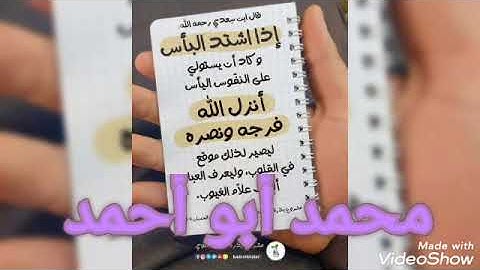 قال ابن سعدي رحمه الله
إذا اشتد البأس
وكاد أن يستولي
على النفوس اليأس
أنزل الله
فرجه ونصره
ليصير لذلك موقع
في القلوب، وليعرف
علام الغيوب.
محمد أبو أحمد
Made with
VideoShow